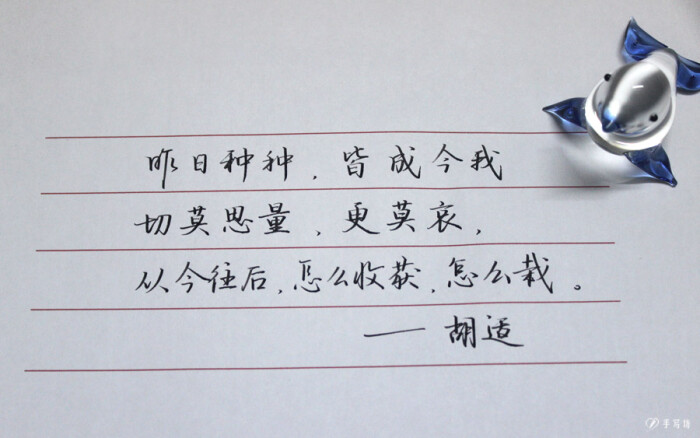 昨日种种，皆成今我
切莫思量，更莫哀，
从今往后，怎么收获，怎么栽。
——胡适
手写控